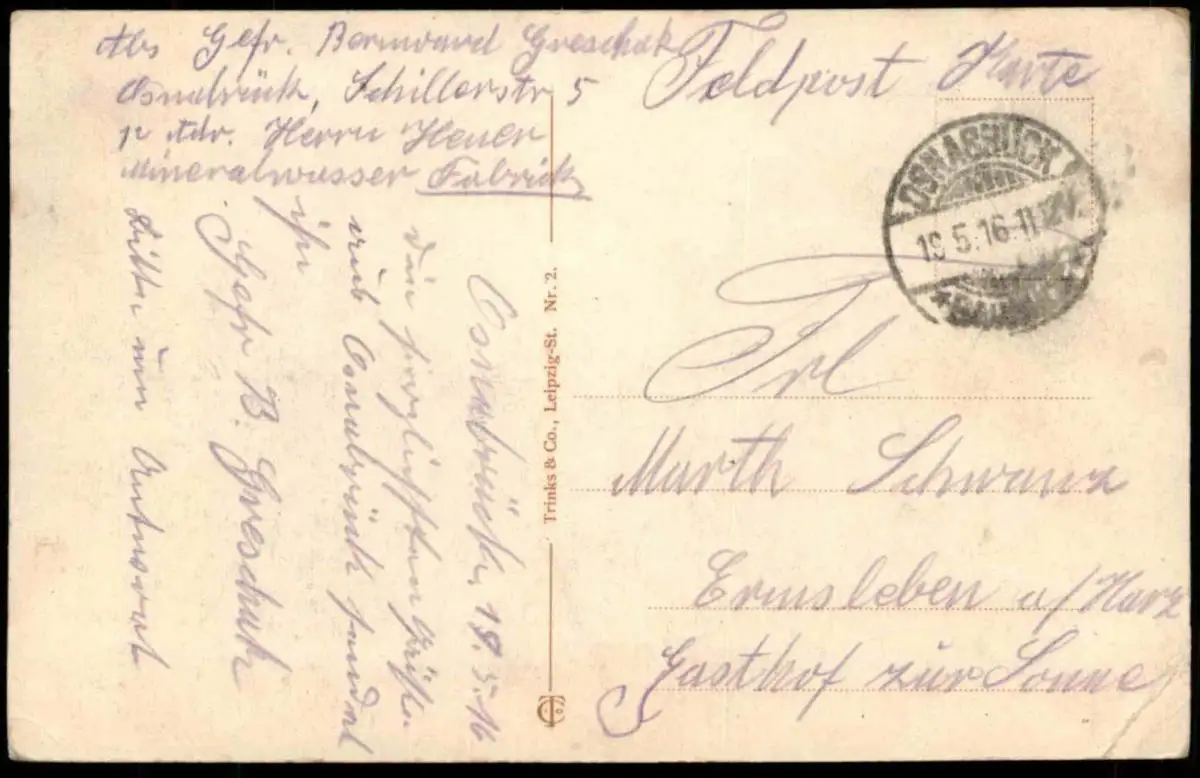 Abs Gefr. Bernward Greschek
Osnabrück, Schillerstr 5
p Adr. Herrn Heuer
Mineralwasser Fabrick
Feldpost Karte
OSNABRÜCK
19.5.16-11-12V.
Osnabrück, 18.5.16
Die herzlichsten Grüße
aus Osnabrück sendet
ihr
Gefr B. Greschek
Bitte um Antwort
Trinks & Co., Leipzig-St. Nr. 2.
Frl
Marth Schwanz
Ermsleben a/Harz
Gasthof zur Sonne